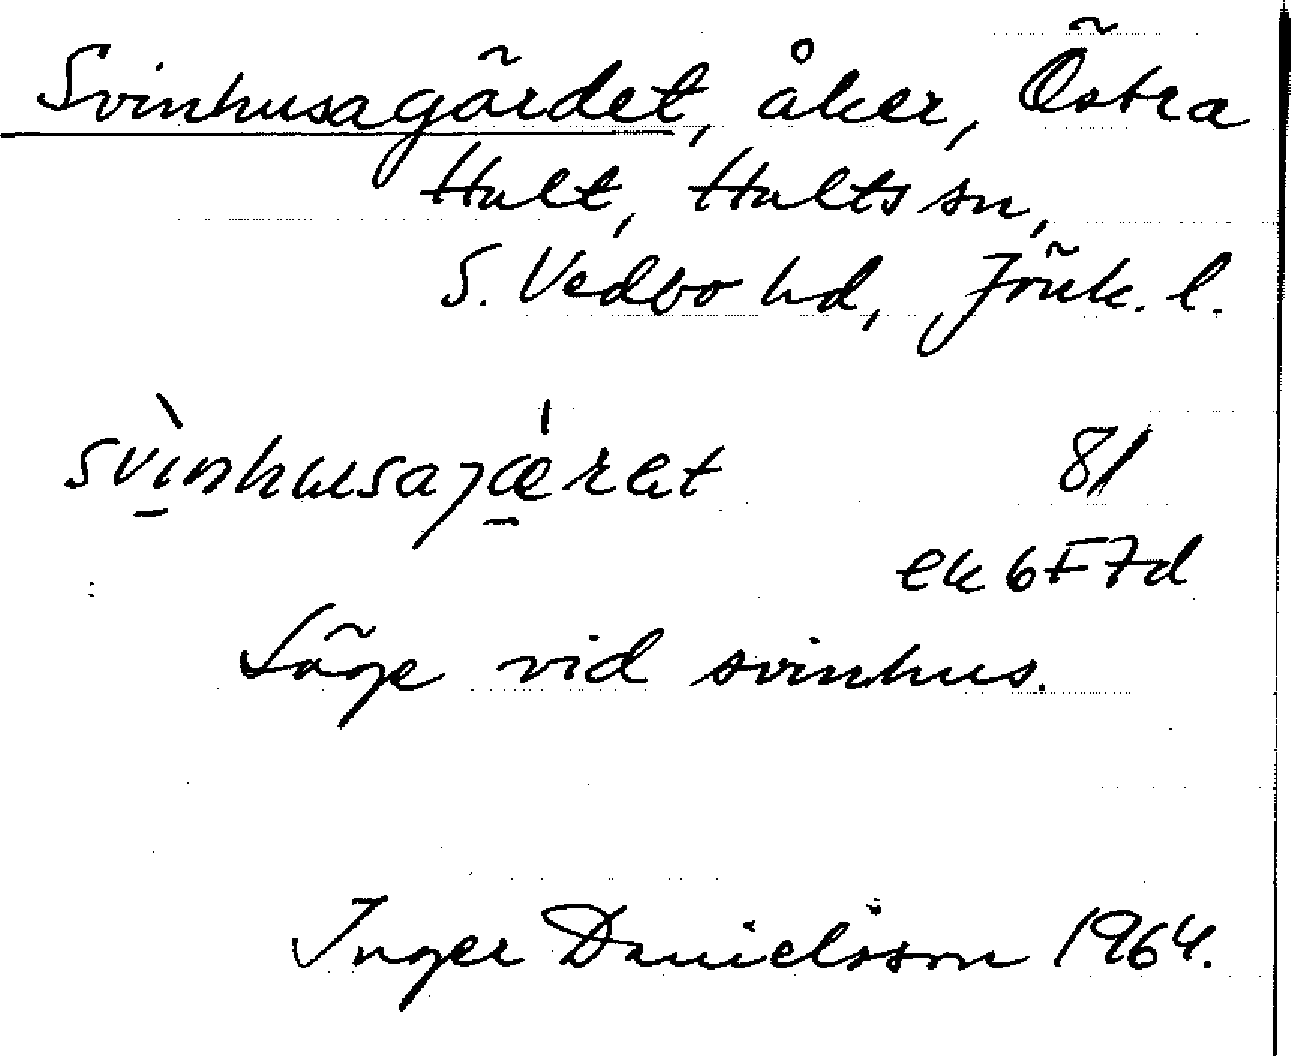 Svinhusagärdet, åker, Östra
Hult, Hults sn,
S. Vedbo hd, Jönk. l.
svìnhusajæ̀ret 81
ek 6F7d
Läge vid svinhus.
Inger Danielsson 1964.